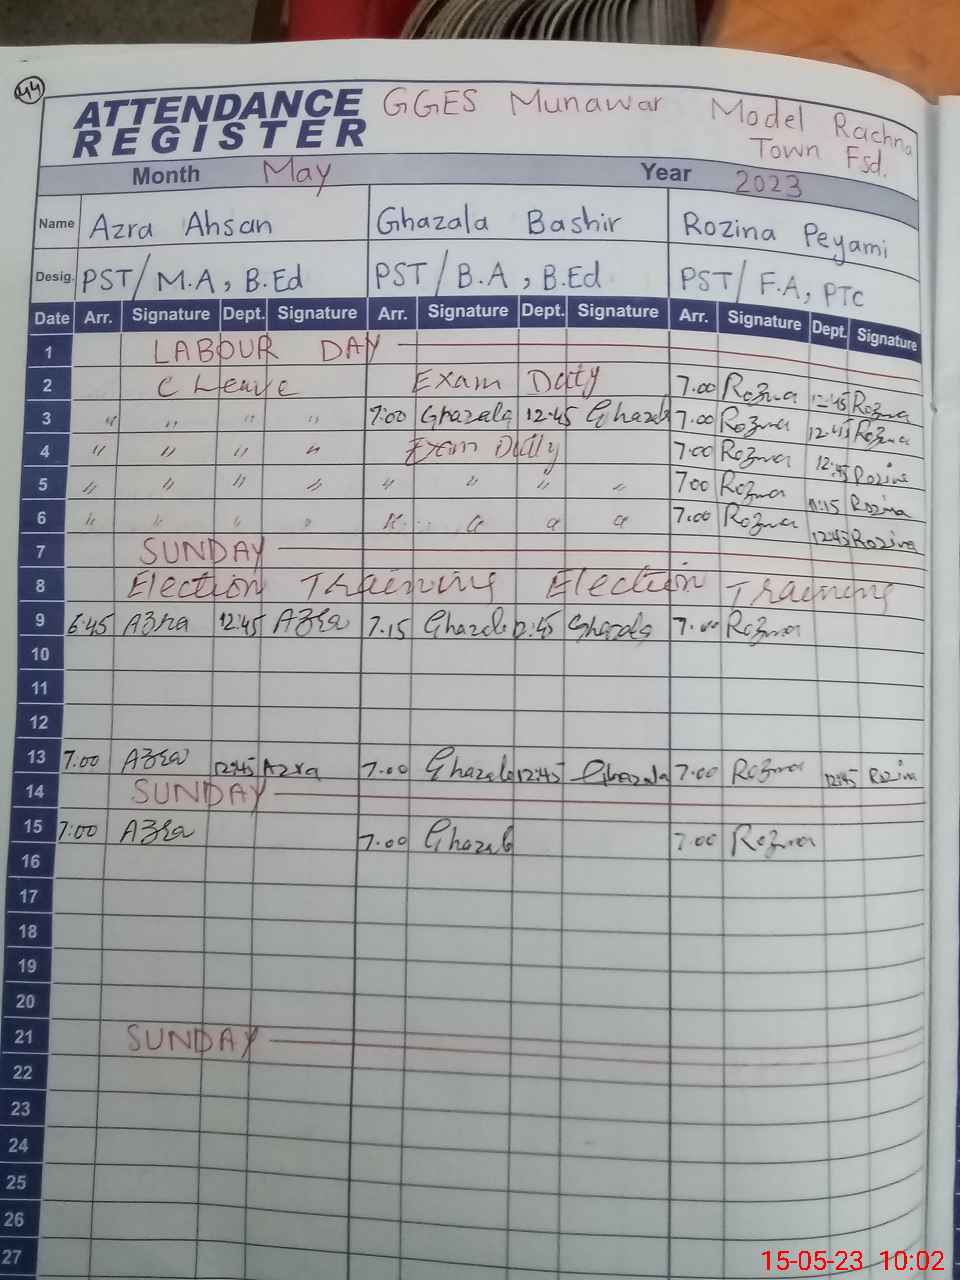 44
ATTENDANCE REGISTER GGES Munawar Model Rachna Town Fsd.
Month May Year 2023
Name Azra Ahsan Ghazala Bashir Rozina Peyami
Desig. PST/M.A, B.Ed PST/B.A, B.Ed PST/F.A, PTC
Date Arr. Signature Dept. Signature Arr. Signature Dept. Signature Arr. Signature Dept. Signature
1 LABOUR DAY
2 C Leave Exam Duty 7.00 Rozina 12:45 Rozina
3 " " " " 7:00 Ghazala 12:45 Ghazala 7.00 Rozina 12:45 Rozina
4 " " " " Exam Duty 7.00 Rozina 12:45 Rozina
5 " " " " " " " " 700 Rozina 11:15 Rozina
6 " " " " " " " " 7.00 Rozina 12:45 Rozina
7 SUNDAY
8 Election Training Election Training
9 6:45 Azra 12:45 Azra 7.15 Ghazala 12:45 Ghazala 7.00 Rozina
10
11
12
13 7.00 Azra 12:45 Azra 7.00 Ghazala 12:45 Ghazala 7.00 Rozina 12:45 Rozina
14 SUNDAY
15 7:00 Azra 7.00 Ghazala 7.00 Rozina
16
17
18
19
20
21 SUNDAY
22
23
24
25
26
27
15-05-23 10:02